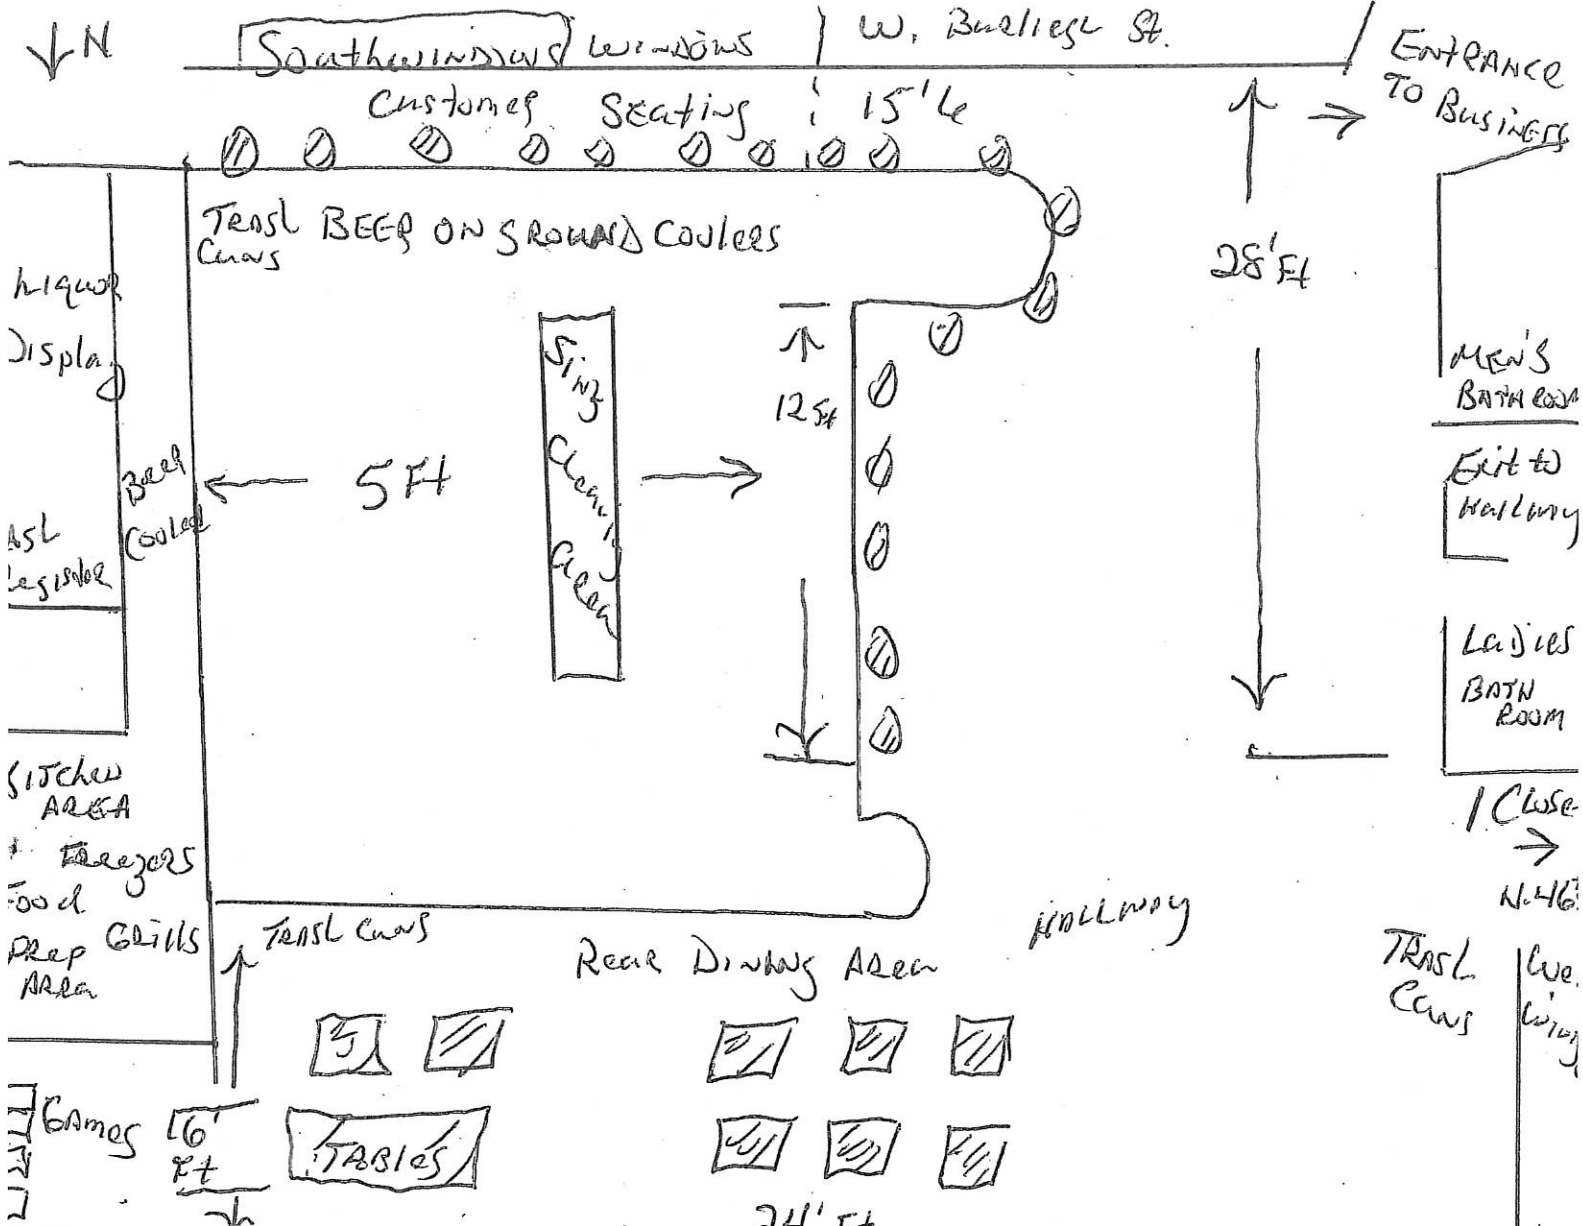 ↓ N
Southwindows windows
W. Burliegh St.
Entrance
To Business
Customer Seating
15'6
Trash
Cans
BEER ON GROUND COOLERS
28' Ft
Liquor
Display
12 Ft
Sink
Cleaning
area
Men's
Bathroom
Beer
Cooler
5 Ft
Exit to
Hallway
Register
Ladies
Bath
Room
Kitchen
AREA
Freezers
Food
Prep
Area
Grills
Trash Cans
Rear Dining Area
Hallway
1 Close
N.46
Trash
Cans
Games
16'
Ft
TABLES
24' Ft